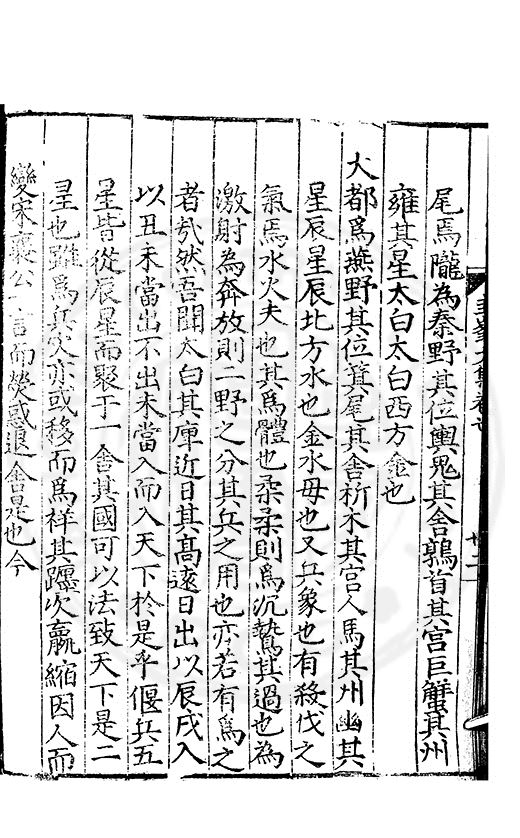 尾焉隴為秦野其位輿鬼其舍鶉首其宮巨蟹其州
雍其星太白太白西方金也
大都爲燕野其位箕尾其舍析木其宮人馬其州幽其
星辰星辰北方水也金水母也又兵象也有殺伐之
氣焉水火夫也其爲體也柔柔則爲沉鷙其過也為
激射為奔放則二野之分其兵之用也亦若有爲之
者㢤然吾聞太白其庳近日其髙逺日出以辰戌入
以丑未當出不出未當入而入天下於是乎偃兵五
星皆從辰星而聚于一舍其國可以法致天下是二
星也雖爲兵灾亦或移而爲祥其躔次贏縮因人而
變宋襄公一言而熒惑退舍是也今